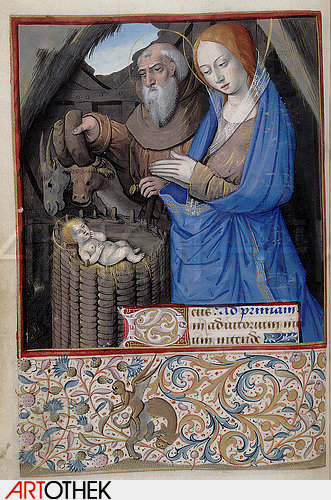 Deus Ad primam
in adiutorium m
eum intende
ARTOTHEK